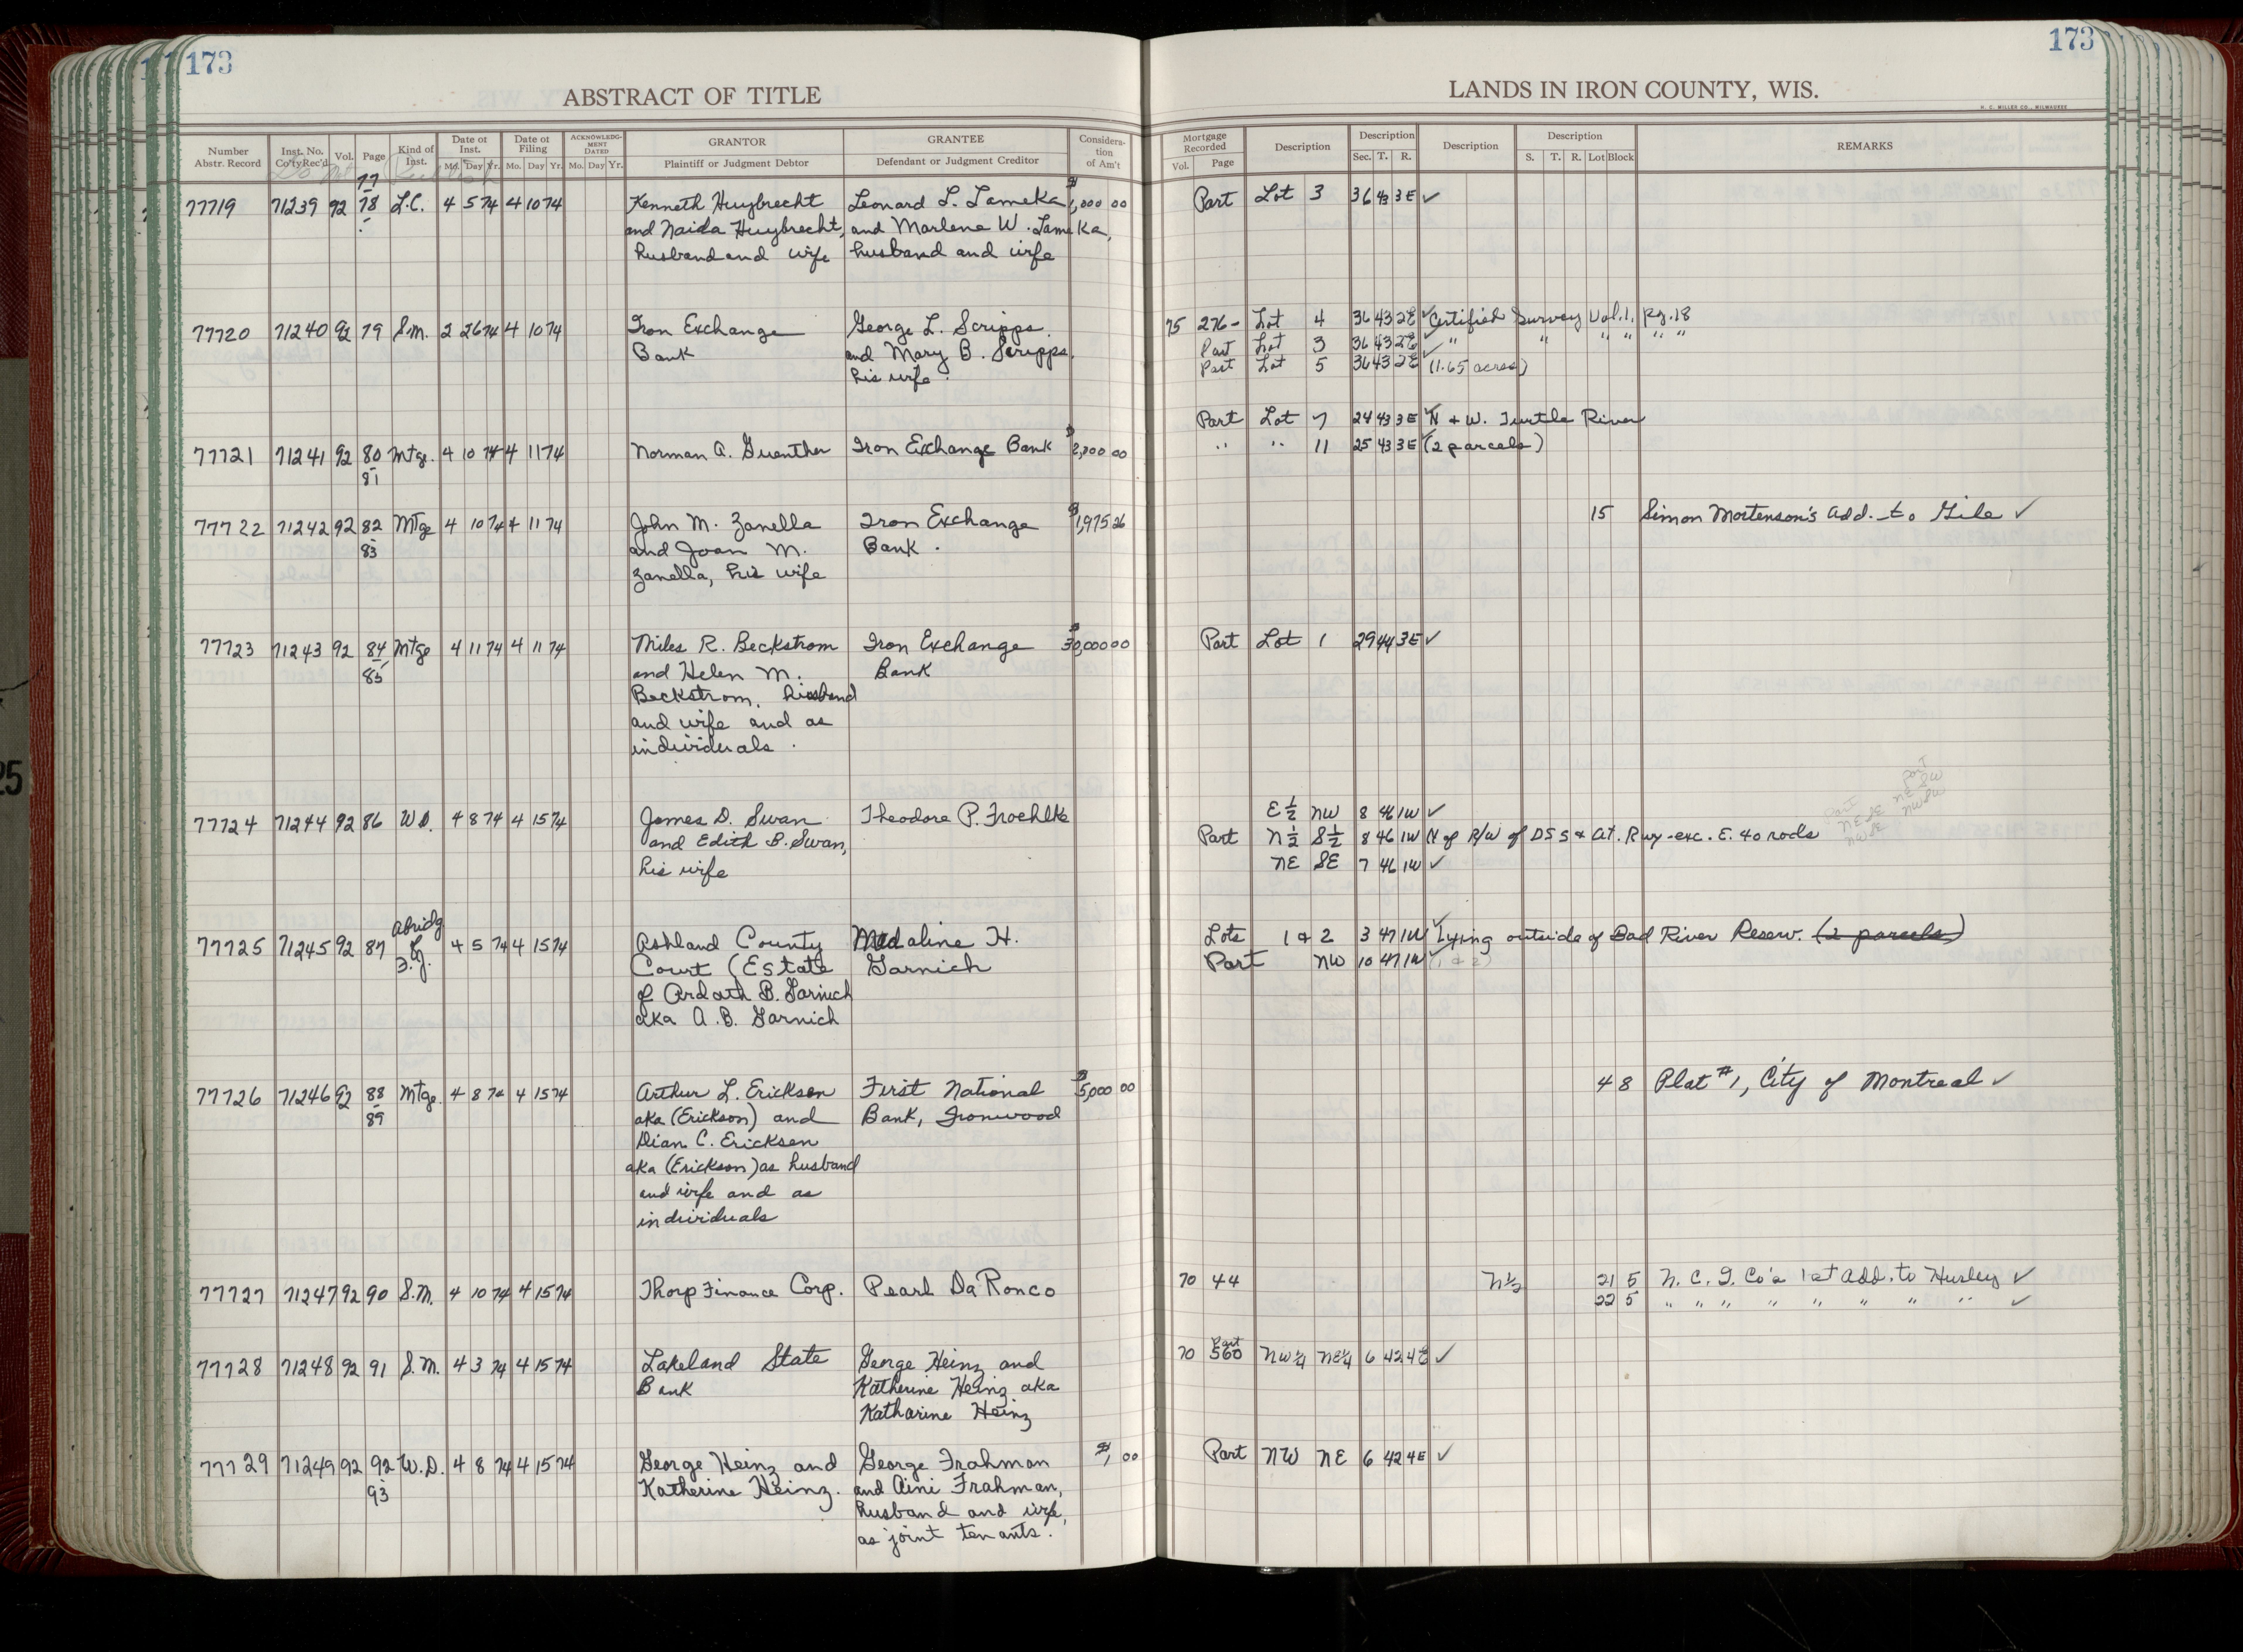 173
173
ABSTRACT OF TITLE
LANDS IN IRON COUNTY, WIS.
H. C. MILLER CO., MILWAUKEE
Number Abstr. Record
Inst. No. Co'ty Rec'd
Vol.
Page
Kind of Inst.
Date of Inst. Mo. Day Yr.
Date of Filing Mo. Day Yr.
ACKNOWLEDGMENT DATED Mo. Day Yr.
GRANTOR Plaintiff or Judgment Debtor
GRANTEE Defendant or Judgment Creditor
Consideration of Am't
Mortgage Recorded Vol. Page
Description
Description Sec. T. R.
Description
Description S. T. R. Lot Block
REMARKS
77719 71239 92 77-78 L.C. 4 5 74 4 10 74 Kenneth Huybrecht Leonard L. Lameka $1,000 00 Part Lot 3 36 43 3E ✓
and Naida Huybrecht, and Marlene W. Lameka,
husband and wife husband and wife
77720 71240 92 79 S.M. 2 26 74 4 10 74 Iron Exchange George L. Scripps 75 276- Lot 4 36 43 2E ✓ Certified Survey Vol. 1, pg. 18
Bank and Mary B. Scripps, Part Lot 3 36 43 2E " " " " " "
his wife. Part Lot 5 36 43 2E ✓ (1.65 acres)
Part Lot 7 24 43 3E N & W. Turtle River
77721 71241 92 80-81 Mtge. 4 10 74 4 11 74 Norman A. Guenther Iron Exchange Bank $2,700 00 " " 11 25 43 3E (2 parcels)
77722 71242 92 82-83 Mtge 4 10 74 4 11 74 John M. Zanella Iron Exchange $1,975 26 15 Simon Mortenson's Add. to Gile ✓
and Joan M. Bank.
Zanella, his wife
77723 71243 92 84-85 Mtge 4 11 74 4 11 74 Miles R. Beckstrom Iron Exchange $30,000 00 Part Lot 1 29 44 3E ✓
and Helen M. Bank
Beckstrom, husband
and wife and as
individuals.
77724 71244 92 86 W.D. 4 8 74 4 15 74 James D. Swan Theodore P. Froehlke E 1/2 NW 8 46 1W ✓
and Edith B. Swan, Part N 1/2 S 1/2 8 46 1W N of R/W of DSS & At. Rwy - exc. E. 40 rods
his wife NE SE 7 46 1W ✓
Part NE SE NW SE
Part NE SW NW SW
77725 71245 92 87 Abridg F.J. 4 5 74 4 15 74 Ashland County Madaline H. Lots 1 & 2 3 47 1W ✓ Lying outside of Bad River Reserv. (2 parcels)
Court (Estate Garnich Part NW 10 47 1W ✓ (1 & 2)
of Ardath B. Garnich
aka A. B. Garnich
77726 71246 92 88-89 Mtge. 4 8 74 4 15 74 Arthur L. Ericksen First National $5,000 00 48 Plat #1, City of Montreal ✓
aka (Erickson) and Bank, Ironwood
Dian C. Ericksen
aka (Erickson) as husband
and wife and as
individuals
77727 71247 92 90 S.M. 4 10 74 4 15 74 Thorp Finance Corp. Pearl DaRonco 70 44 N 1/2 21 5 N. C. I. Co's 1st Add. to Hurley ✓
22 5 " " " " " " " " ✓
77728 71248 92 91 S.M. 4 3 74 4 15 74 Lakeland State George Heinz and 70 560 Part NW¼ NE¼ 6 42 4E ✓
Bank Katherine Heinz aka
Katharine Heinz
77729 71249 92 92-93 W.D. 4 8 74 4 15 74 George Heinz and George Frahman $1, 00 Part NW NE 6 42 4E ✓
Katherine Heinz. and Aini Frahman,
husband and wife,
as joint tenants.
25